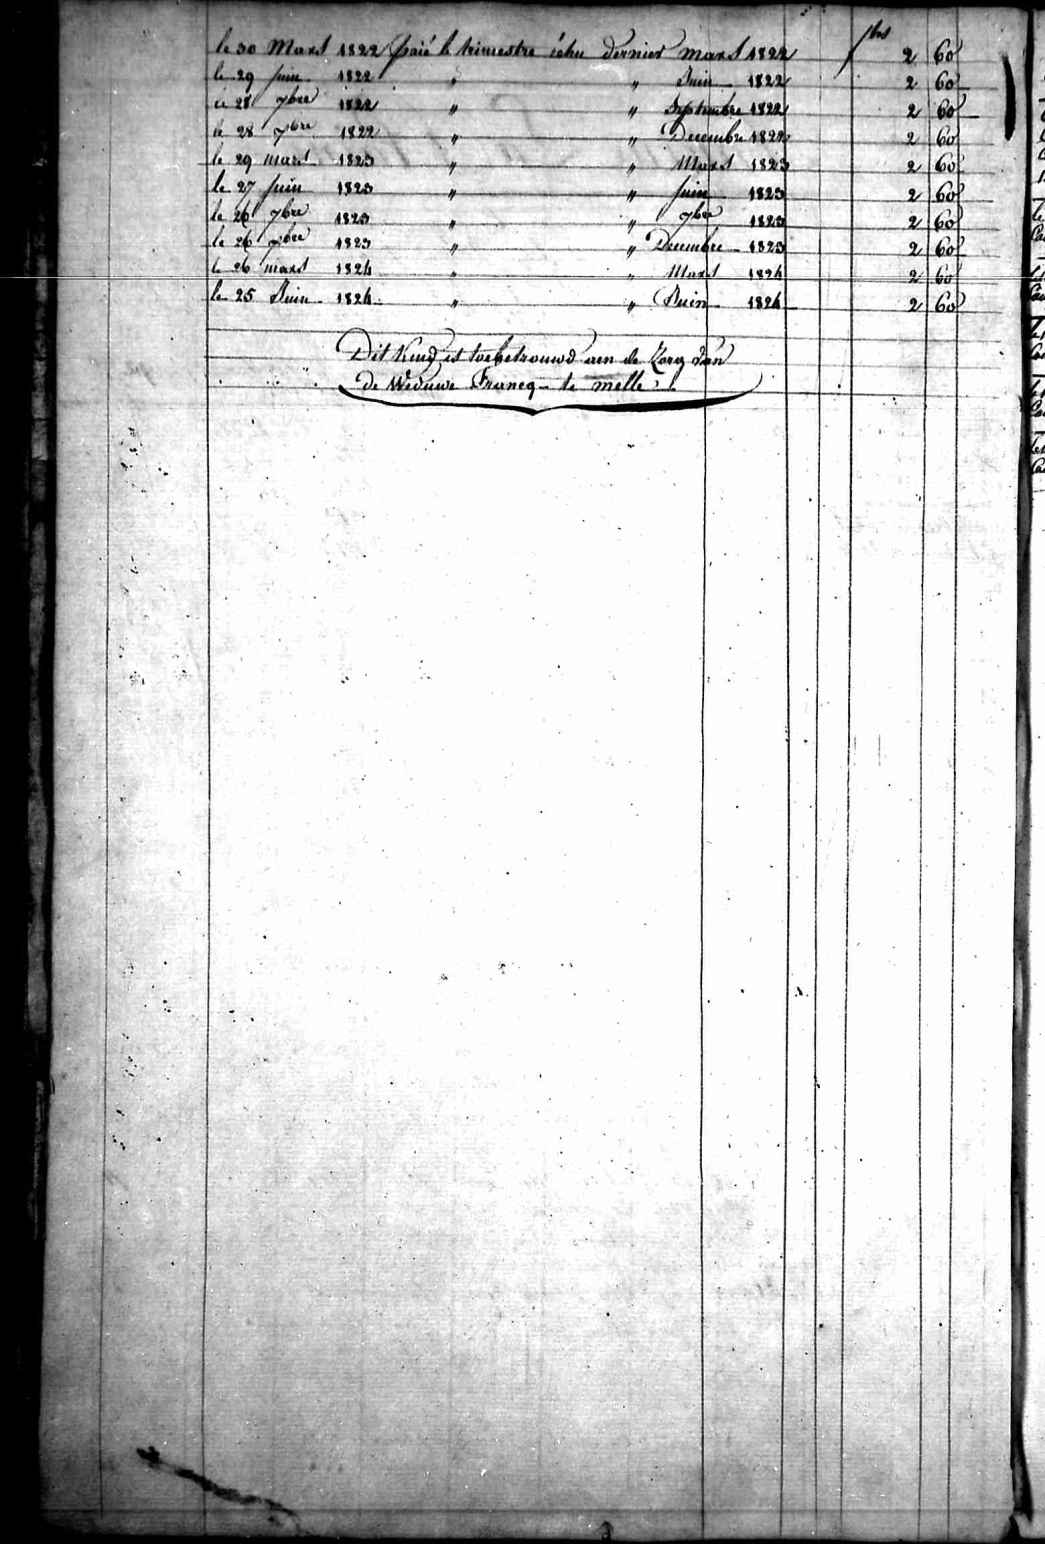 fls
le 30 Mars 1822 paié le trimestre échu dernier mars 1822 2 60
le 29 Juin 1822 " " Juin 1822 2 60
le 28 7bre 1822 " " Septembre 1822 2 60
le 28 xbre 1822 " " Decembre 1822 2 60
le 29 mars 1823 " " Mars 1823 2 60
le 27 Juin 1823 " " Juin 1823 2 60
le 26 7bre 1823 " " 7bre 1823 2 60
le 26 xbre 1823 " " Decembre 1823 2 60
le 26 mars 1824 " " Mars 1824 2 60
le 25 Juin 1824 " " Juin 1824 2 60
Dit Kind is toebetrouwd aen de Zorg van
de Weduwe Francq te melle.